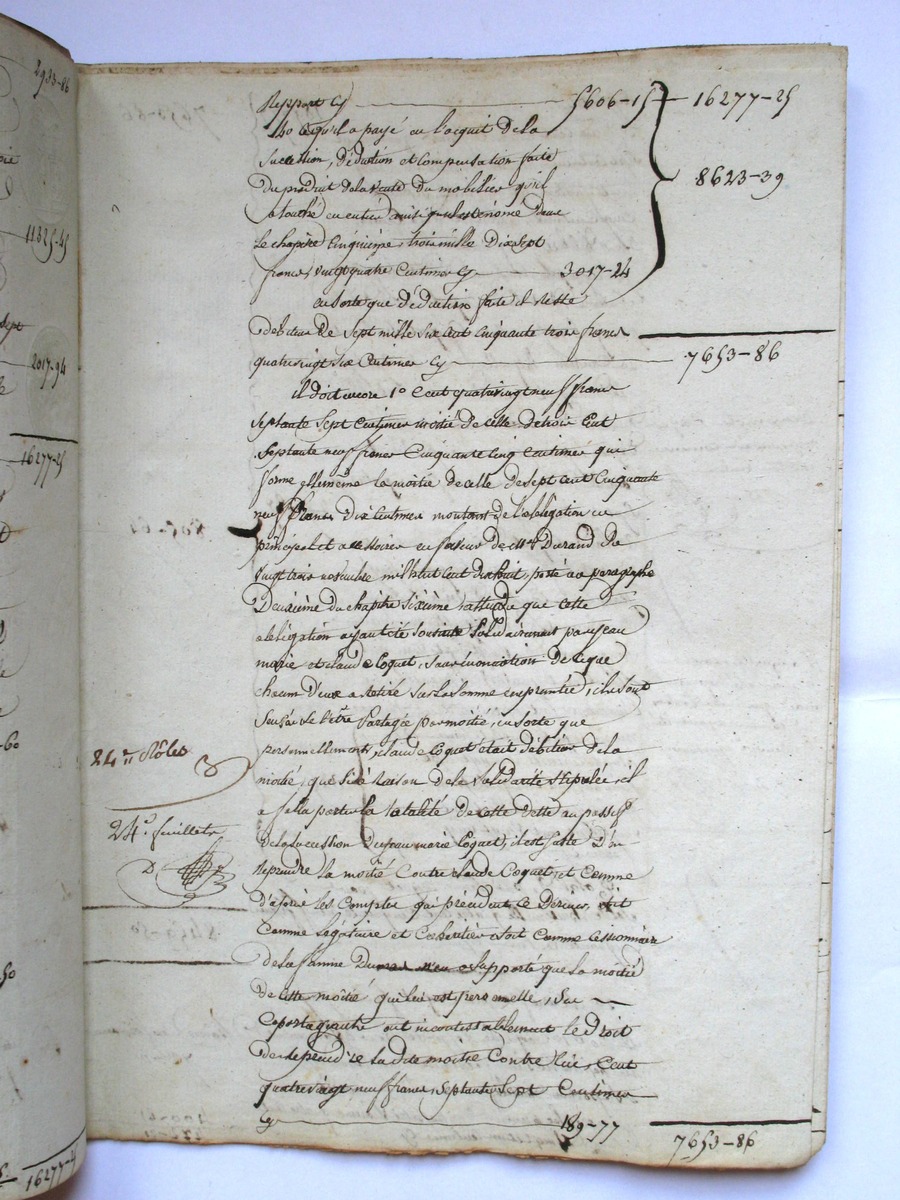 2953-86
11325-45
2017-94
16277-25
-60
50
16277-25
Report Cy 5606-15 16277-25
4o Ce qu'il a payé en l'acquit de la
succession, déduction et compensation faite
du produit de la vente du mobilier qu'il
a touché en entier ainsi qu'il est énoncé dans
8623-39
le chapitre cinquième, trois mille dix sept
francs, vingt quatre centimes Cy 3017-24
en sorte que déduction faite il reste
débiteur de sept mille six cent cinquante trois francs
quatre vingt six centimes Cy 7653-86
il doit encore 1o cent quatre vingt neuf francs
septante sept centimes moitié de celle de trois cent
septante neuf francs cinquante cinq centimes qui
forme elle même la moitié de celle de sept cent cinquante
neuf francs dix centimes montant de l'obligation en
principal et accessoires en faveur de Mr Durand du
vingt trois novembre mil huit cent dix huit, porté au paragraphe
deuxième du chapitre sixième, attendu que cette
obligation ayant été souscrite solidairement par feau
marie et claude Coquet, sans énonciation de ce que
chacun d'eux a retiré sur la somme empruntée, ils sont
sensés se l'être partagée par moitié, en sorte que
personnellement, claude Coquet était débiteur de la
moitié, que si à raison de la solidarité stipulée, il
a fallu porter la totalité de cette dette au passif
de la succession de feau marie Coquet, il est juste d'en
reprendre la moitié contre claude Coquet, et comme
d'après les comptes qui précèdent ce dernier, soit
comme légataire et cohéritier soit comme cessionnaire
de la femme a supporté que la moitié
de cette moitié qui lui est personnelle, ses
copartageants ont incontestablement le droit
de reprendre la dite moitié contre lui, cent
quatre vingt neuf francs, septante sept centimes
Cy 189-77
7653-86
84e Rôles
24e feuillets
D